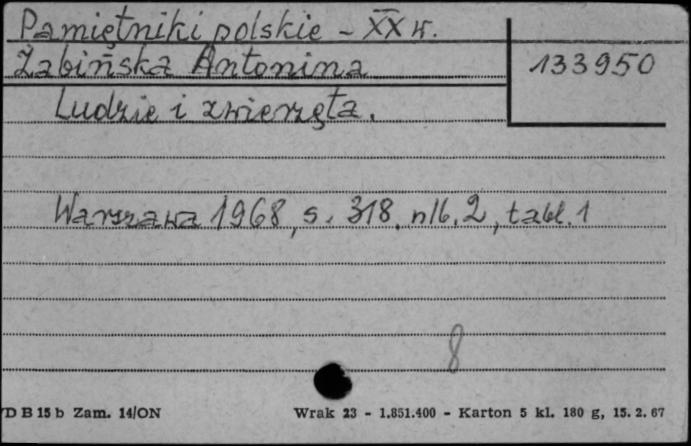 Pamiętniki polskie - XX w.
Żabińska Antonina
133950
Ludzie i zwierzęta.
Warszawa 1968, s. 318, nlb. 2, tabl. 1
8
D B 15 b Zam. 14/ON
Wrak 23 - 1.851.400 - Karton 5 kl. 180 g, 15. 2. 67